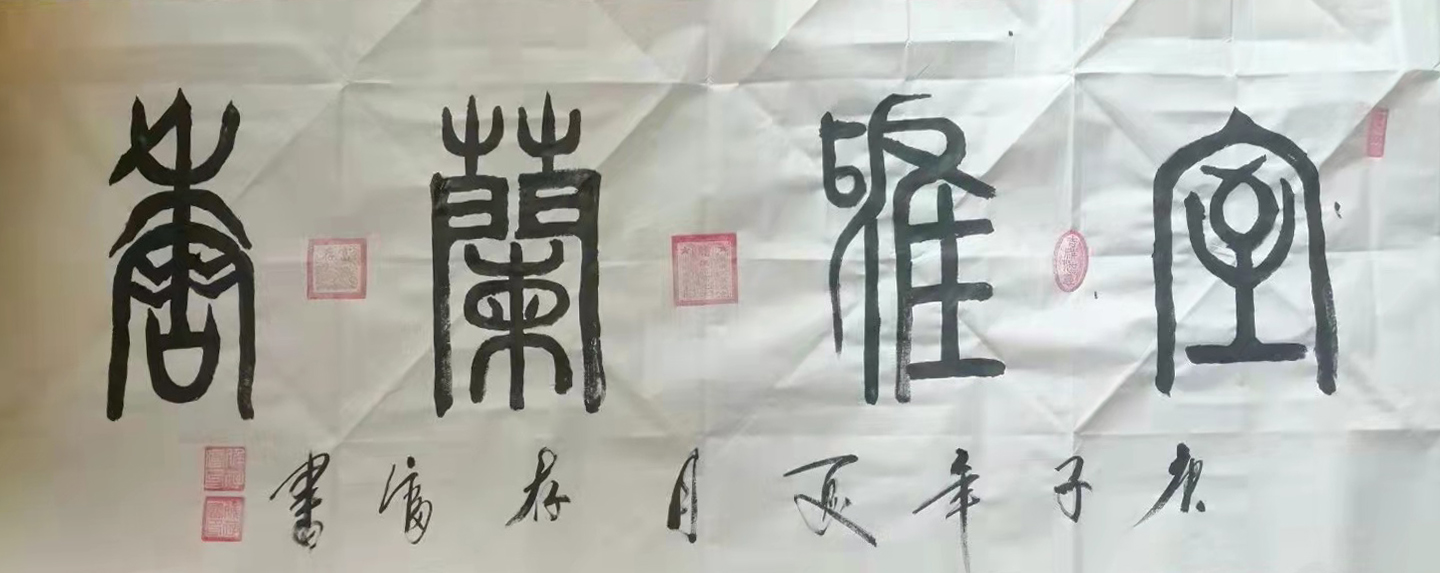 室雅蘭香
庚子年夏月存書